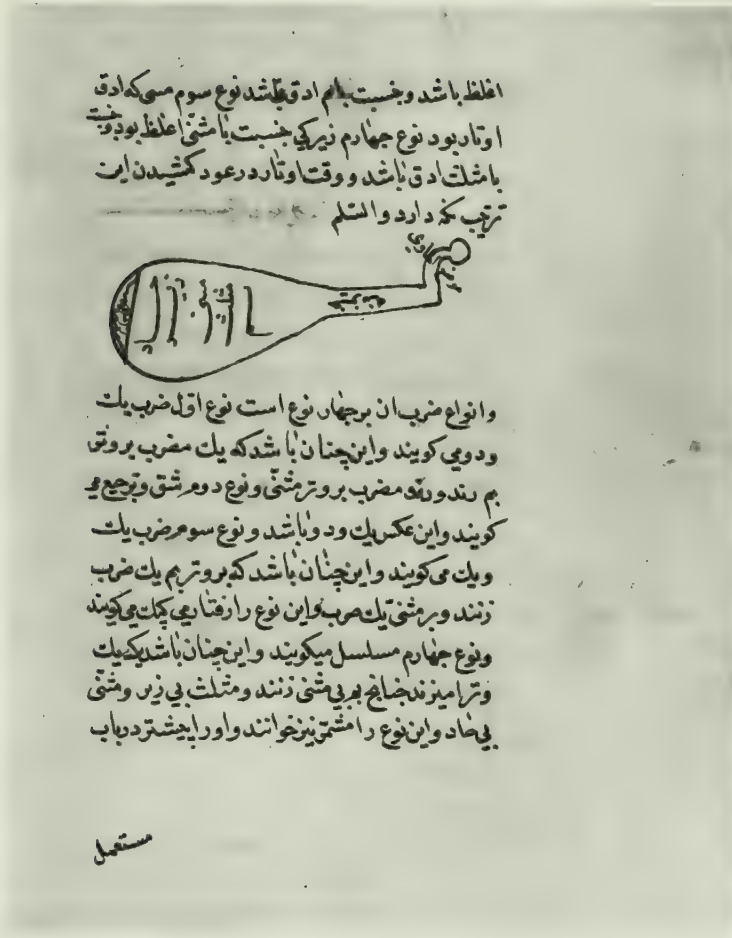 اغلظ باشد و جنسبت بام ادق باشد نوع سوم مسی که ادق
اوتار بود نوع جهارم زیر کی جنسبت با مثنی اغلظ بود و جنسبت
با مثلث ادق باشد و وقت اوتار در عود کشیدن این
ترتیب نکه دارد والسلم
وانواع ضرب ان بر جهار نوع است نوع اول ضرب یك
ودومی کویند واین چنان باشد که یك مضرب بر وتر
بم زند ودو مضرب بر وتر مثنی ونوع دوم شق وترجیع می
کویند واین عکس یك ودو باشد ونوع سوم ضرب یك
ویك می کویند واین چنان باشد که بر وتر بم یك ضرب
زنند وبر مثنی یك ضرب واین نوع را رفتار می کویند
ونوع جهارم مسلسل میکویند واین چنان باشد که یك
وترا میزند چنانچ بم بی مثنی زنند ومثلث بی زیر ومثنی
بی حاد واین نوع را مشمر نیز خوانند واورا بیشتر در باب
مستعمل